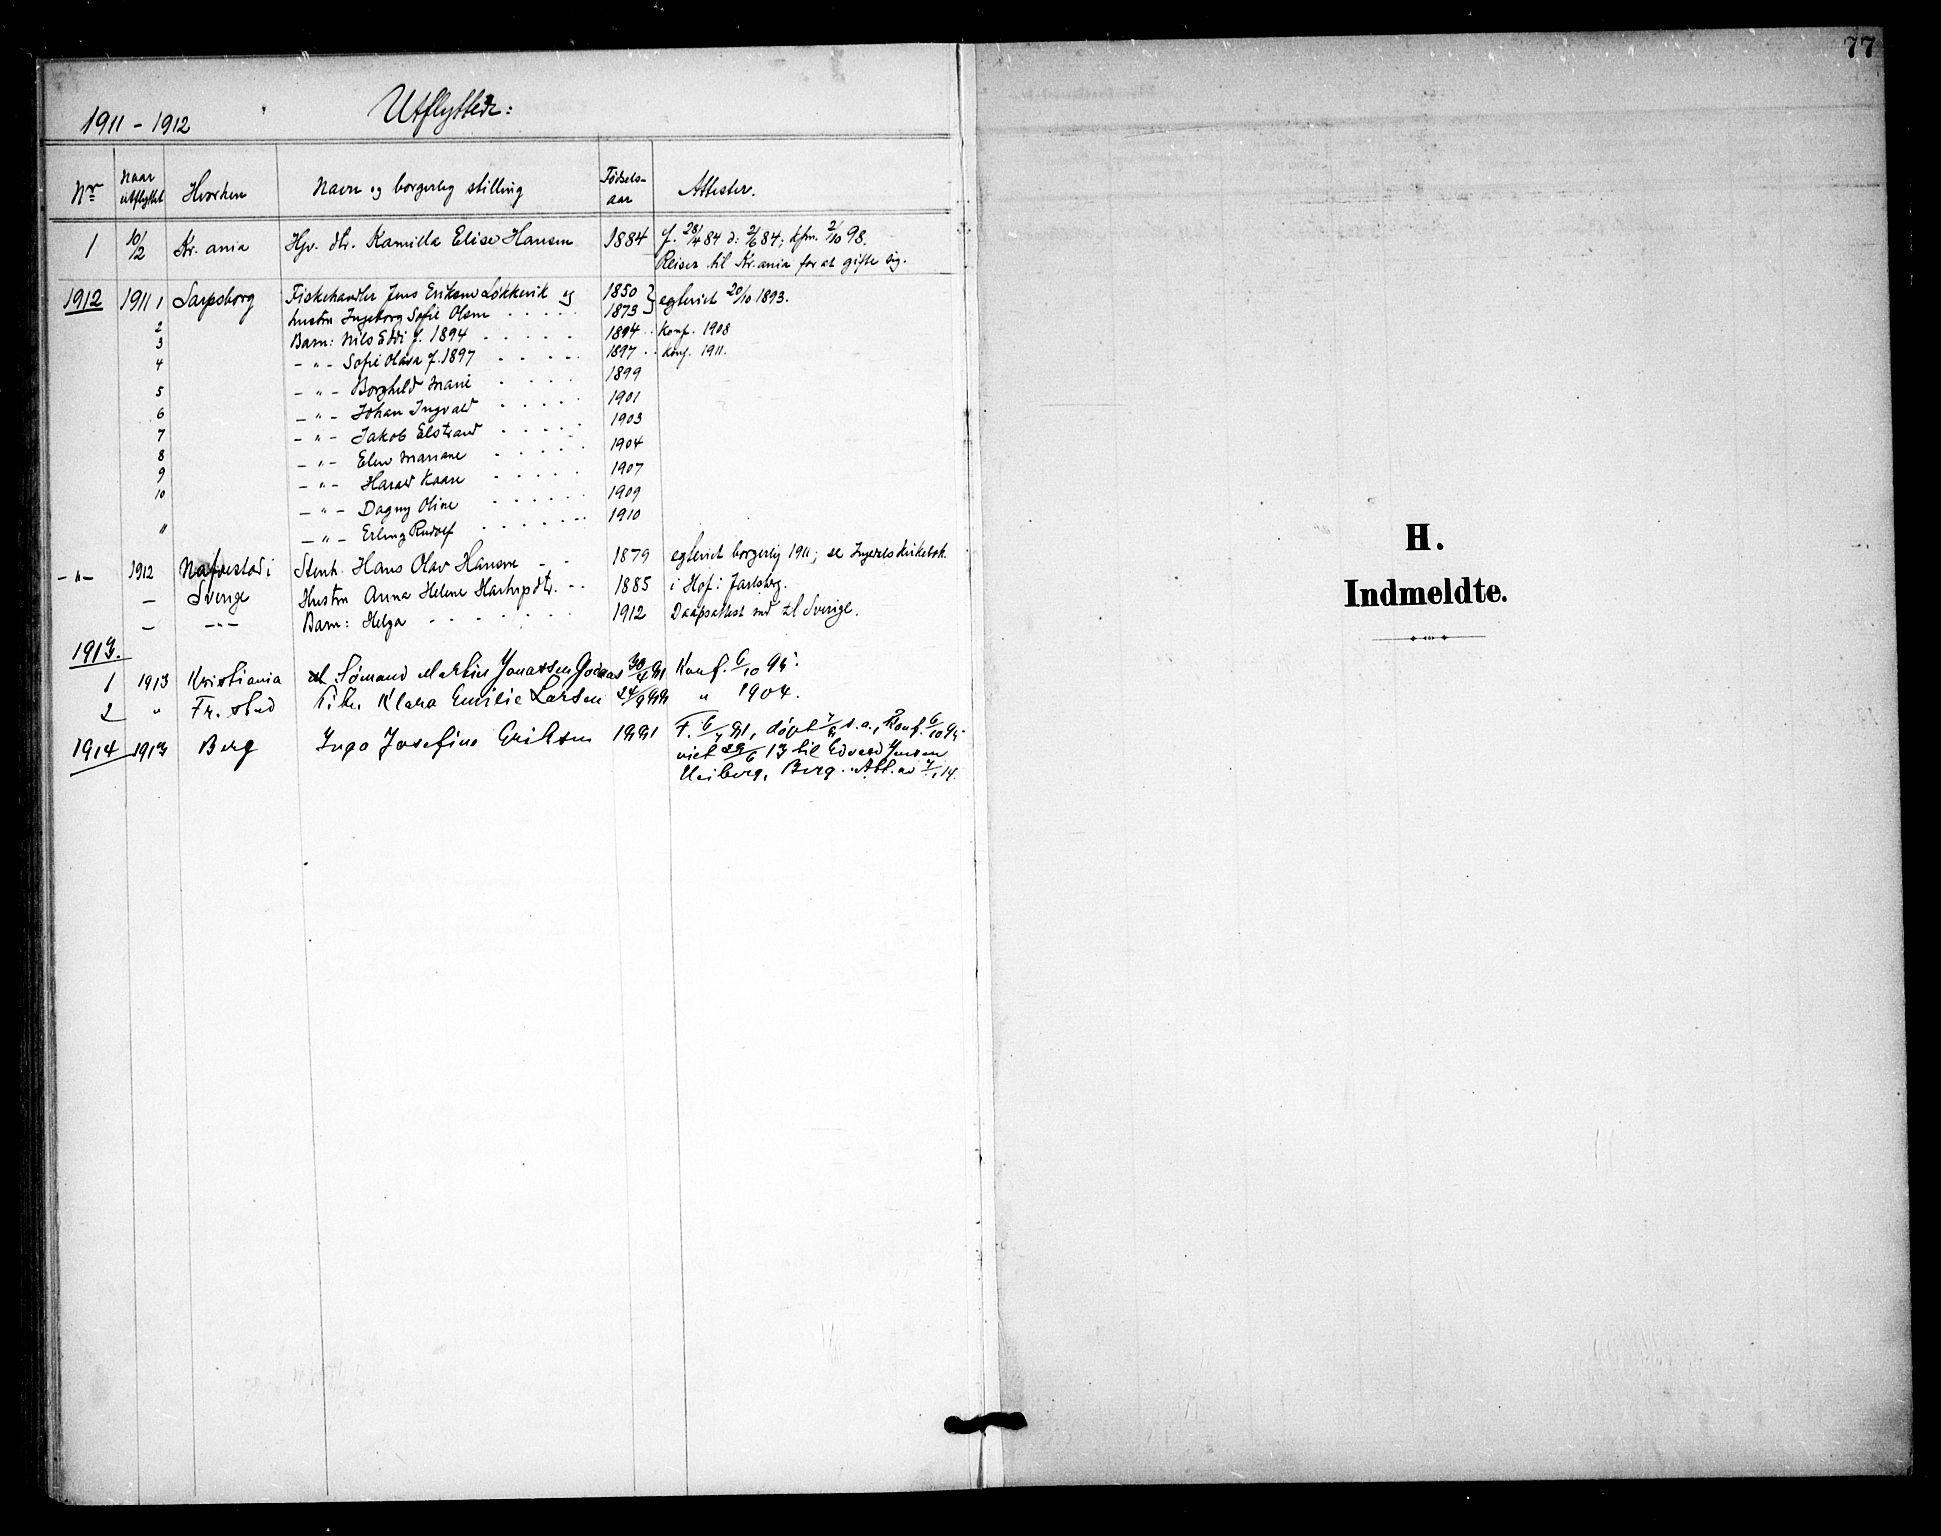 77
1911 - 1912 Utflyttede:
Nr Naar utflyttet Hvorhen Navn og borgerlig stilling Fødsels-aar Attester.
1 10/2 Kr.ania Hjv. dtr. Kamilla Elise Hansen 1884 f. 28/4 84 d: 2/6 84; kfm. 2/10 98.
Reiser til Kr.ania for at gifte sig.
1912 1911 1 Sarpsborg Fiskehandler Jens Eriksen Løkkevik og 1850 } egteviet 20/10 1893.
2 hustru Ingeborg Sofie Olsen 1873
3 Barn: Nils Eddi f. 1894 1894 Konf. 1908
4 - " - Sofie Olava f. 1897 1897 Konf. 1911.
5 - " - Borghild Marie 1899
6 - " - Johan Ingvald 1901
7 - " - Jakob Elstrand 1903
8 - " - Elen Mariane 1904
9 - " - Harald Kaare 1907
10 - " - Dagny Oline 1909
11 - " - Erling Rudolf 1910
- " - 1912 Nafvestad i Stenh. Hans Olav Hansen 1879 egteviet borgerlig 1911; se Ingedals Kirkebok
- Sverige Hustru Anna Helene Hartvigsdtr. 1885 i Hof i Jarlsberg.
- - " - Barn: Helga 1912 Daapsattest med til Sverige.
1913.
1 1913 Kristiania Sømand Martin Jonassen 30/4 81 Konf. 6/10 95.
2 " Fr. stad Pike Klara Emilie Larsen 24/9 88 " 1904.
1914 1913 Berg Inga Josefine Eriksen 1881 F. 6/7 81, døpt 7/8 s.a., Konf. 6/10 95
viet 29/6 13 til Edvard Jensen
Uiberg, Berg. Att. av 7/1 14.
H.
Indmeldte.